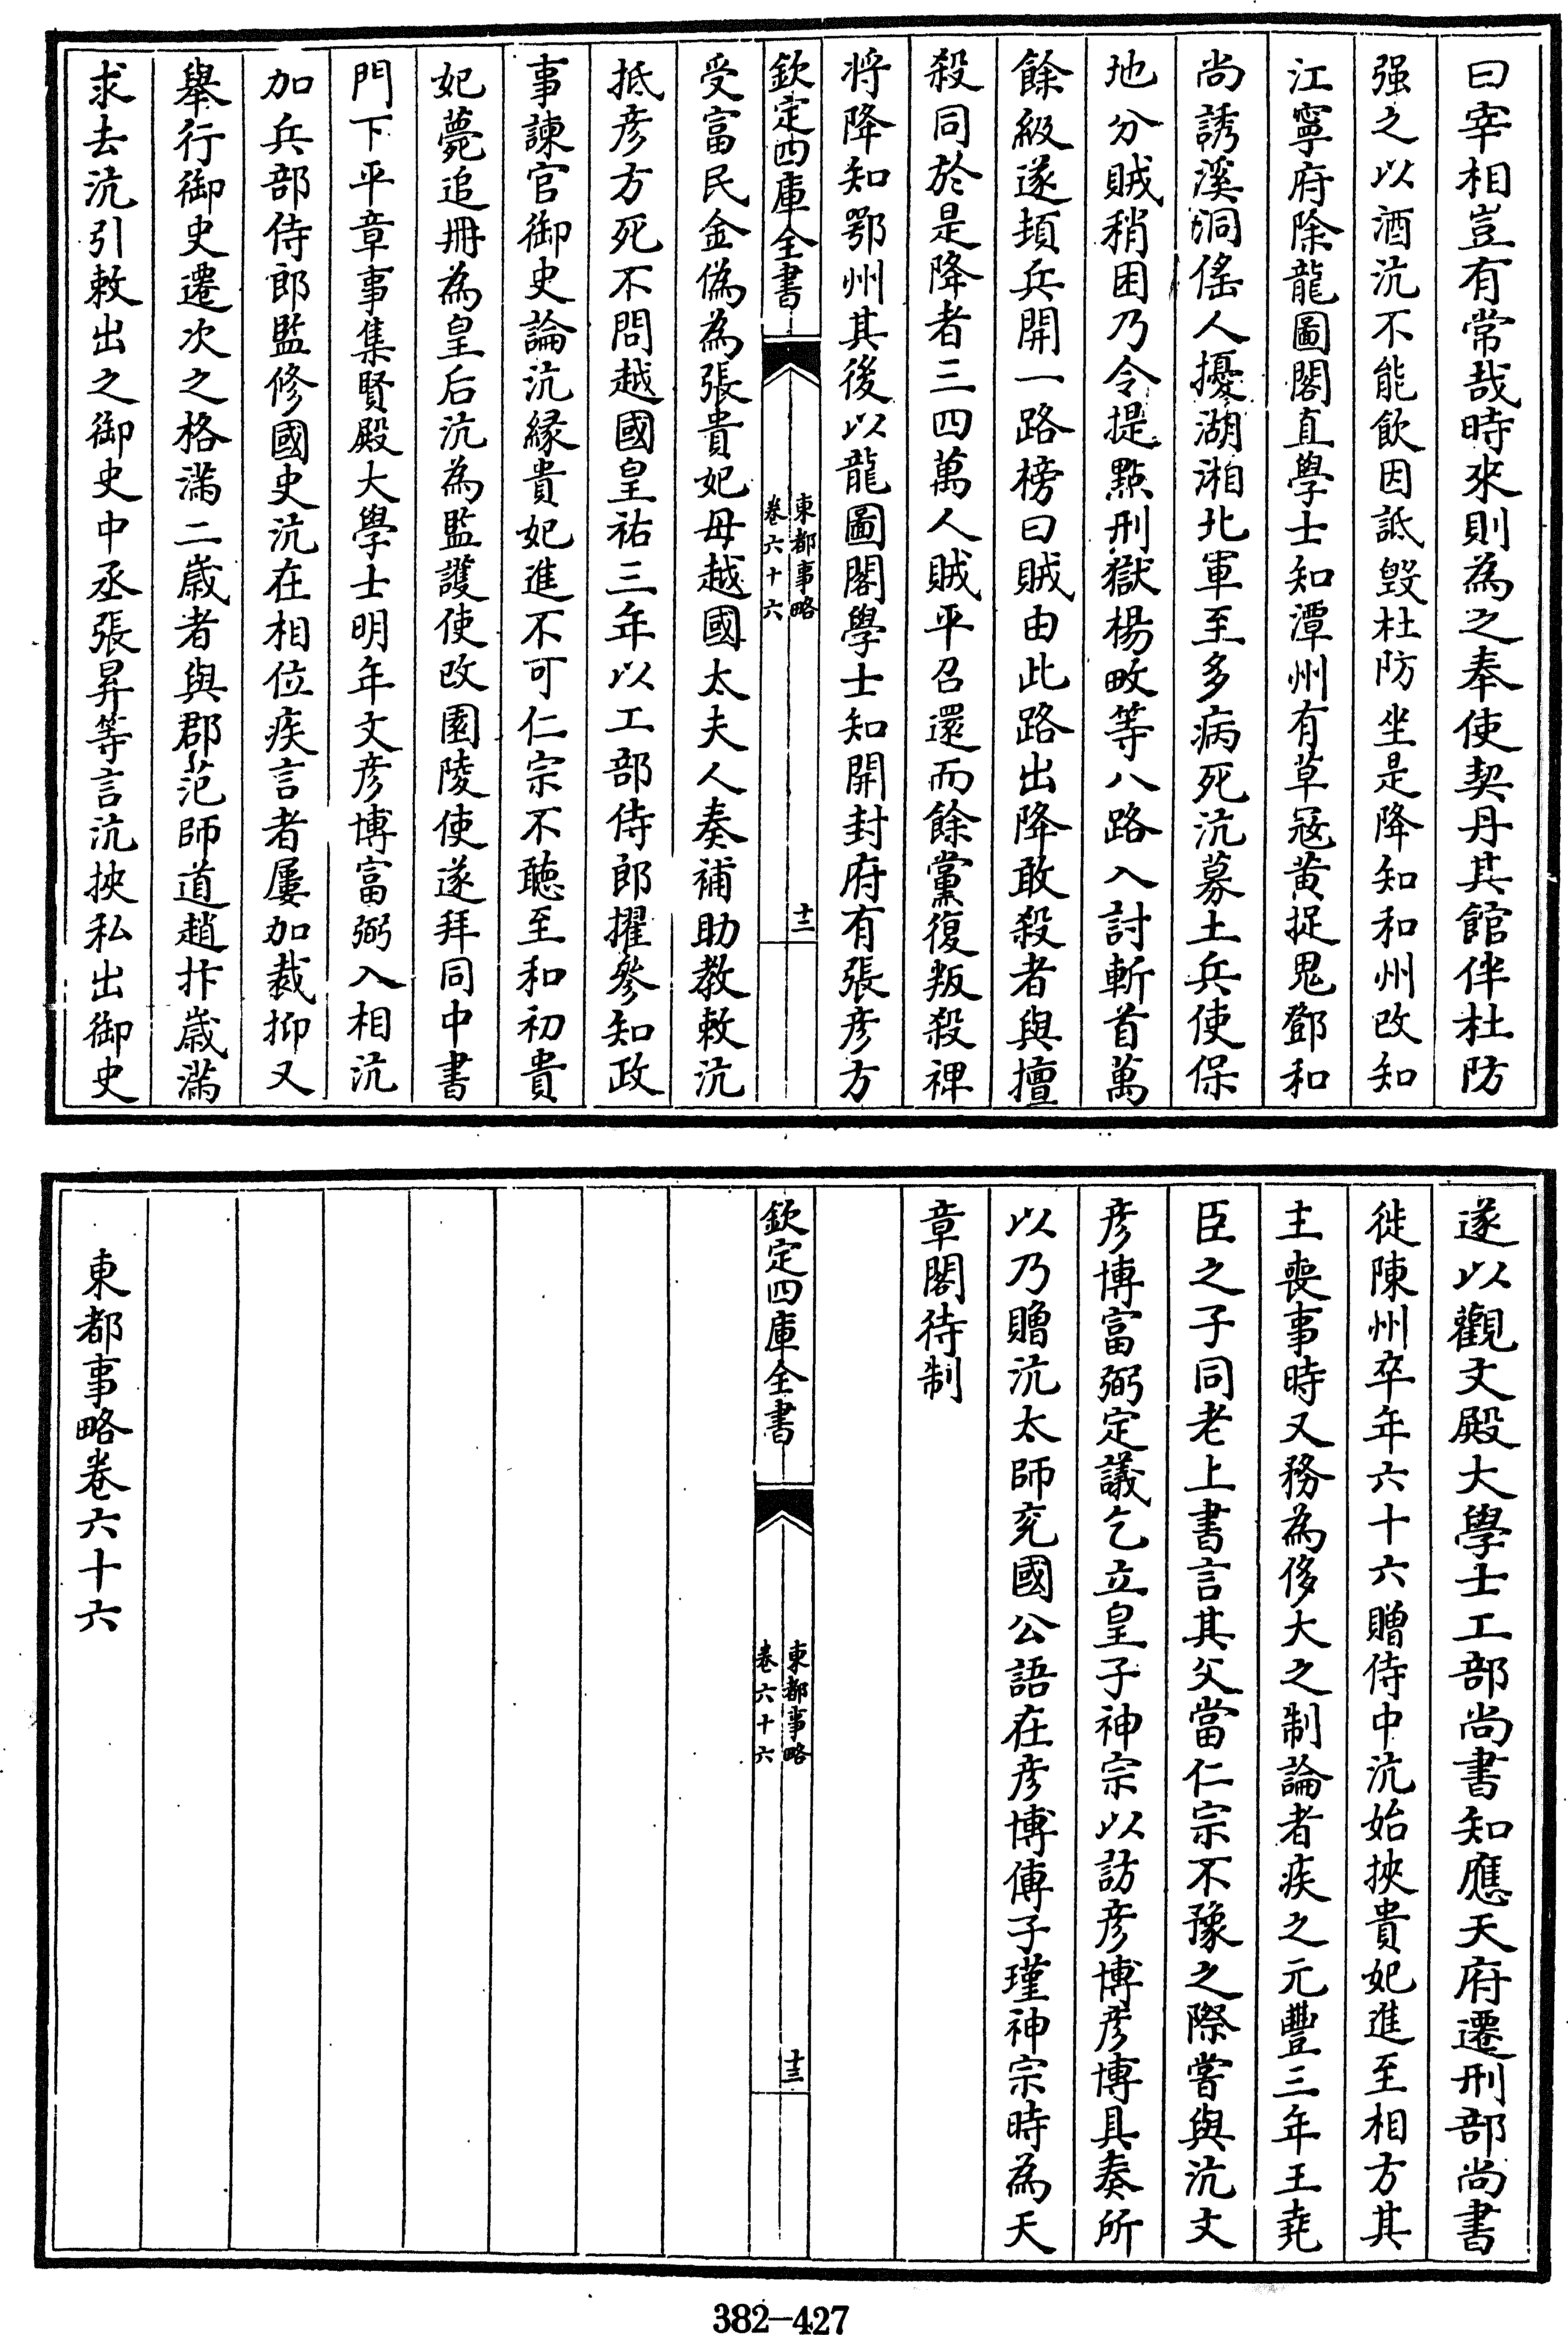 曰宰相豈有常哉時來則為之奉使契丹其館伴杜防
强之以酒沆不能飲因詆毁杜防坐是降知和州改知
江寧府除龍圖閣直學士知潭州有草冦黄捉鬼鄧和
尚誘溪洞傜人擾湖湘北軍至多病死沆募土兵使保
地分賊稍困乃令提㸃刑獄楊畋等八路入討斬首萬
餘級遂頓兵開一路榜曰賊由此路出降敢殺者與擅
殺同於是降者三四萬人賊平召還而餘黨復叛殺裨
将降知鄂州其後以龍圖閣學士知開封府有張彦方
欽定四庫全書
東都事略
卷六十六
十二
受富民金偽為張貴妃母越國太夫人奏補助教敕沆
抵彦方死不問越國皇祐三年以工部侍郎擢參知政
事諫官御史論沆縁貴妃進不可仁宗不聴至和初貴
妃薨追冊為皇后沆為監護使改園陵使遂拜同中書
門下平章事集賢殿大學士明年文彦博富弼入相沆
加兵部侍郎監修國史沆在相位疾言者屢加裁抑又
舉行御史遷次之格滿二歲者與郡范師道趙抃歲滿
求去沆引敕出之御史中丞張昇等言沆挾私出御史
遂以觀文殿大學士工部尚書知應天府遷刑部尚書
徙陳州卒年六十六贈侍中沆始挾貴妃進至相方其
主喪事時又務為侈大之制論者疾之元豐三年王堯
臣之子同老上書言其父當仁宗不豫之際嘗與沆文
彦博富弼定議乞立皇子神宗以訪彦博彦博具奏所
以乃贈沆太師兖國公語在彦博傳子瑾神宗時為天
章閣待制
欽定四庫全書
東都事略
卷六十六
十三
東都事略卷六十六
382-427